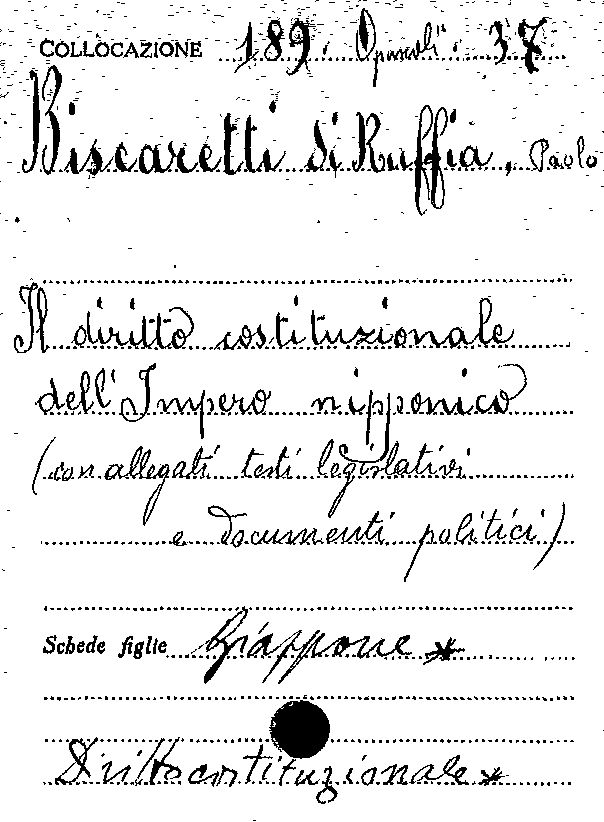 COLLOCAZIONE 189. Opuscoli. 37
Biscaretti di Ruffia, Paolo
Il diritto costituzionale
dell'Impero nipponico
(con allegati testi legislativi
e documenti politici)
Schede figlie Giappone *
Diritto costituzionale *